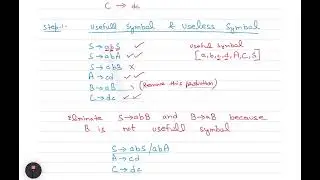 C → dc
Step:1. Usefull Symbol & Useless Symbol
S → abS ✓✓ useful symbol
S → abA ✓✓ [a,b,c,d,A,C,S]
S → abB ×
A → cd ✓✓
B → aB (Remove this production)
C → dc ✓✓
Elminate S→abB and B→aB because
B is not usefull symbol
S → abS/abA
A → cd
C → dc